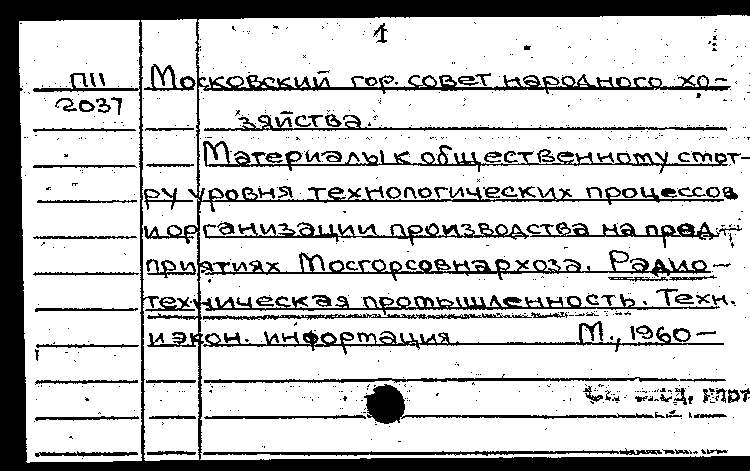 1
П11 Московский гор. совет народного хо-
2037 зяйства.
Материалы к общественному смот-
ру уровня технологических процессов
и организации производства на пред-
приятиях Мосгорсовнархоза. Радио-
техническая промышленность. Техн.
и экон. информация М., 1960—